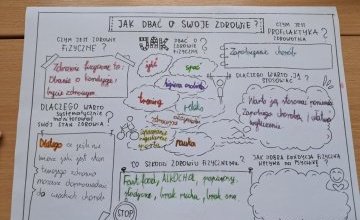 JAK DBAĆ O SWOJE ZDROWIE?
CZYM JEST ZDROWIE
FIZYCZNE ?
Zdrowie fizyczne to:
Dbanie o kondycję i
bycie zdrowym
JAK
DBAĆ O
ZDROWIE
FIZYCZNE ?
jeść
spać
higiena osobista
trening
relaks
nauka
CZYM JEST
PROFILAKTYKA
ZDROWOTNA ?
Zapobieganie chorobą
DLACZEGO WARTO JĄ
STOSOWAĆ ?
Warto ją
Zapobiega chorobą i
DLACZEGO WARTO
SYSTEMATYCZNIE
MONITOROWAĆ
SWÓJ STAN ZDROWIA?
Dlatego że jeśli nie
wiemy jaki jest stan
naszego zdrowia
możemy doprowadzić
do ciężkich chorób
CO SZKODZI ZDROWIU FIZYCZNEMU ?
Fast foody, ALKOCHOL, papierosy,
brak ruchu, brak snu
STOP
JAK DOBRA KONDYCJA FIZYCZNA
WPŁYWA NA PSYCHIKĘ ?